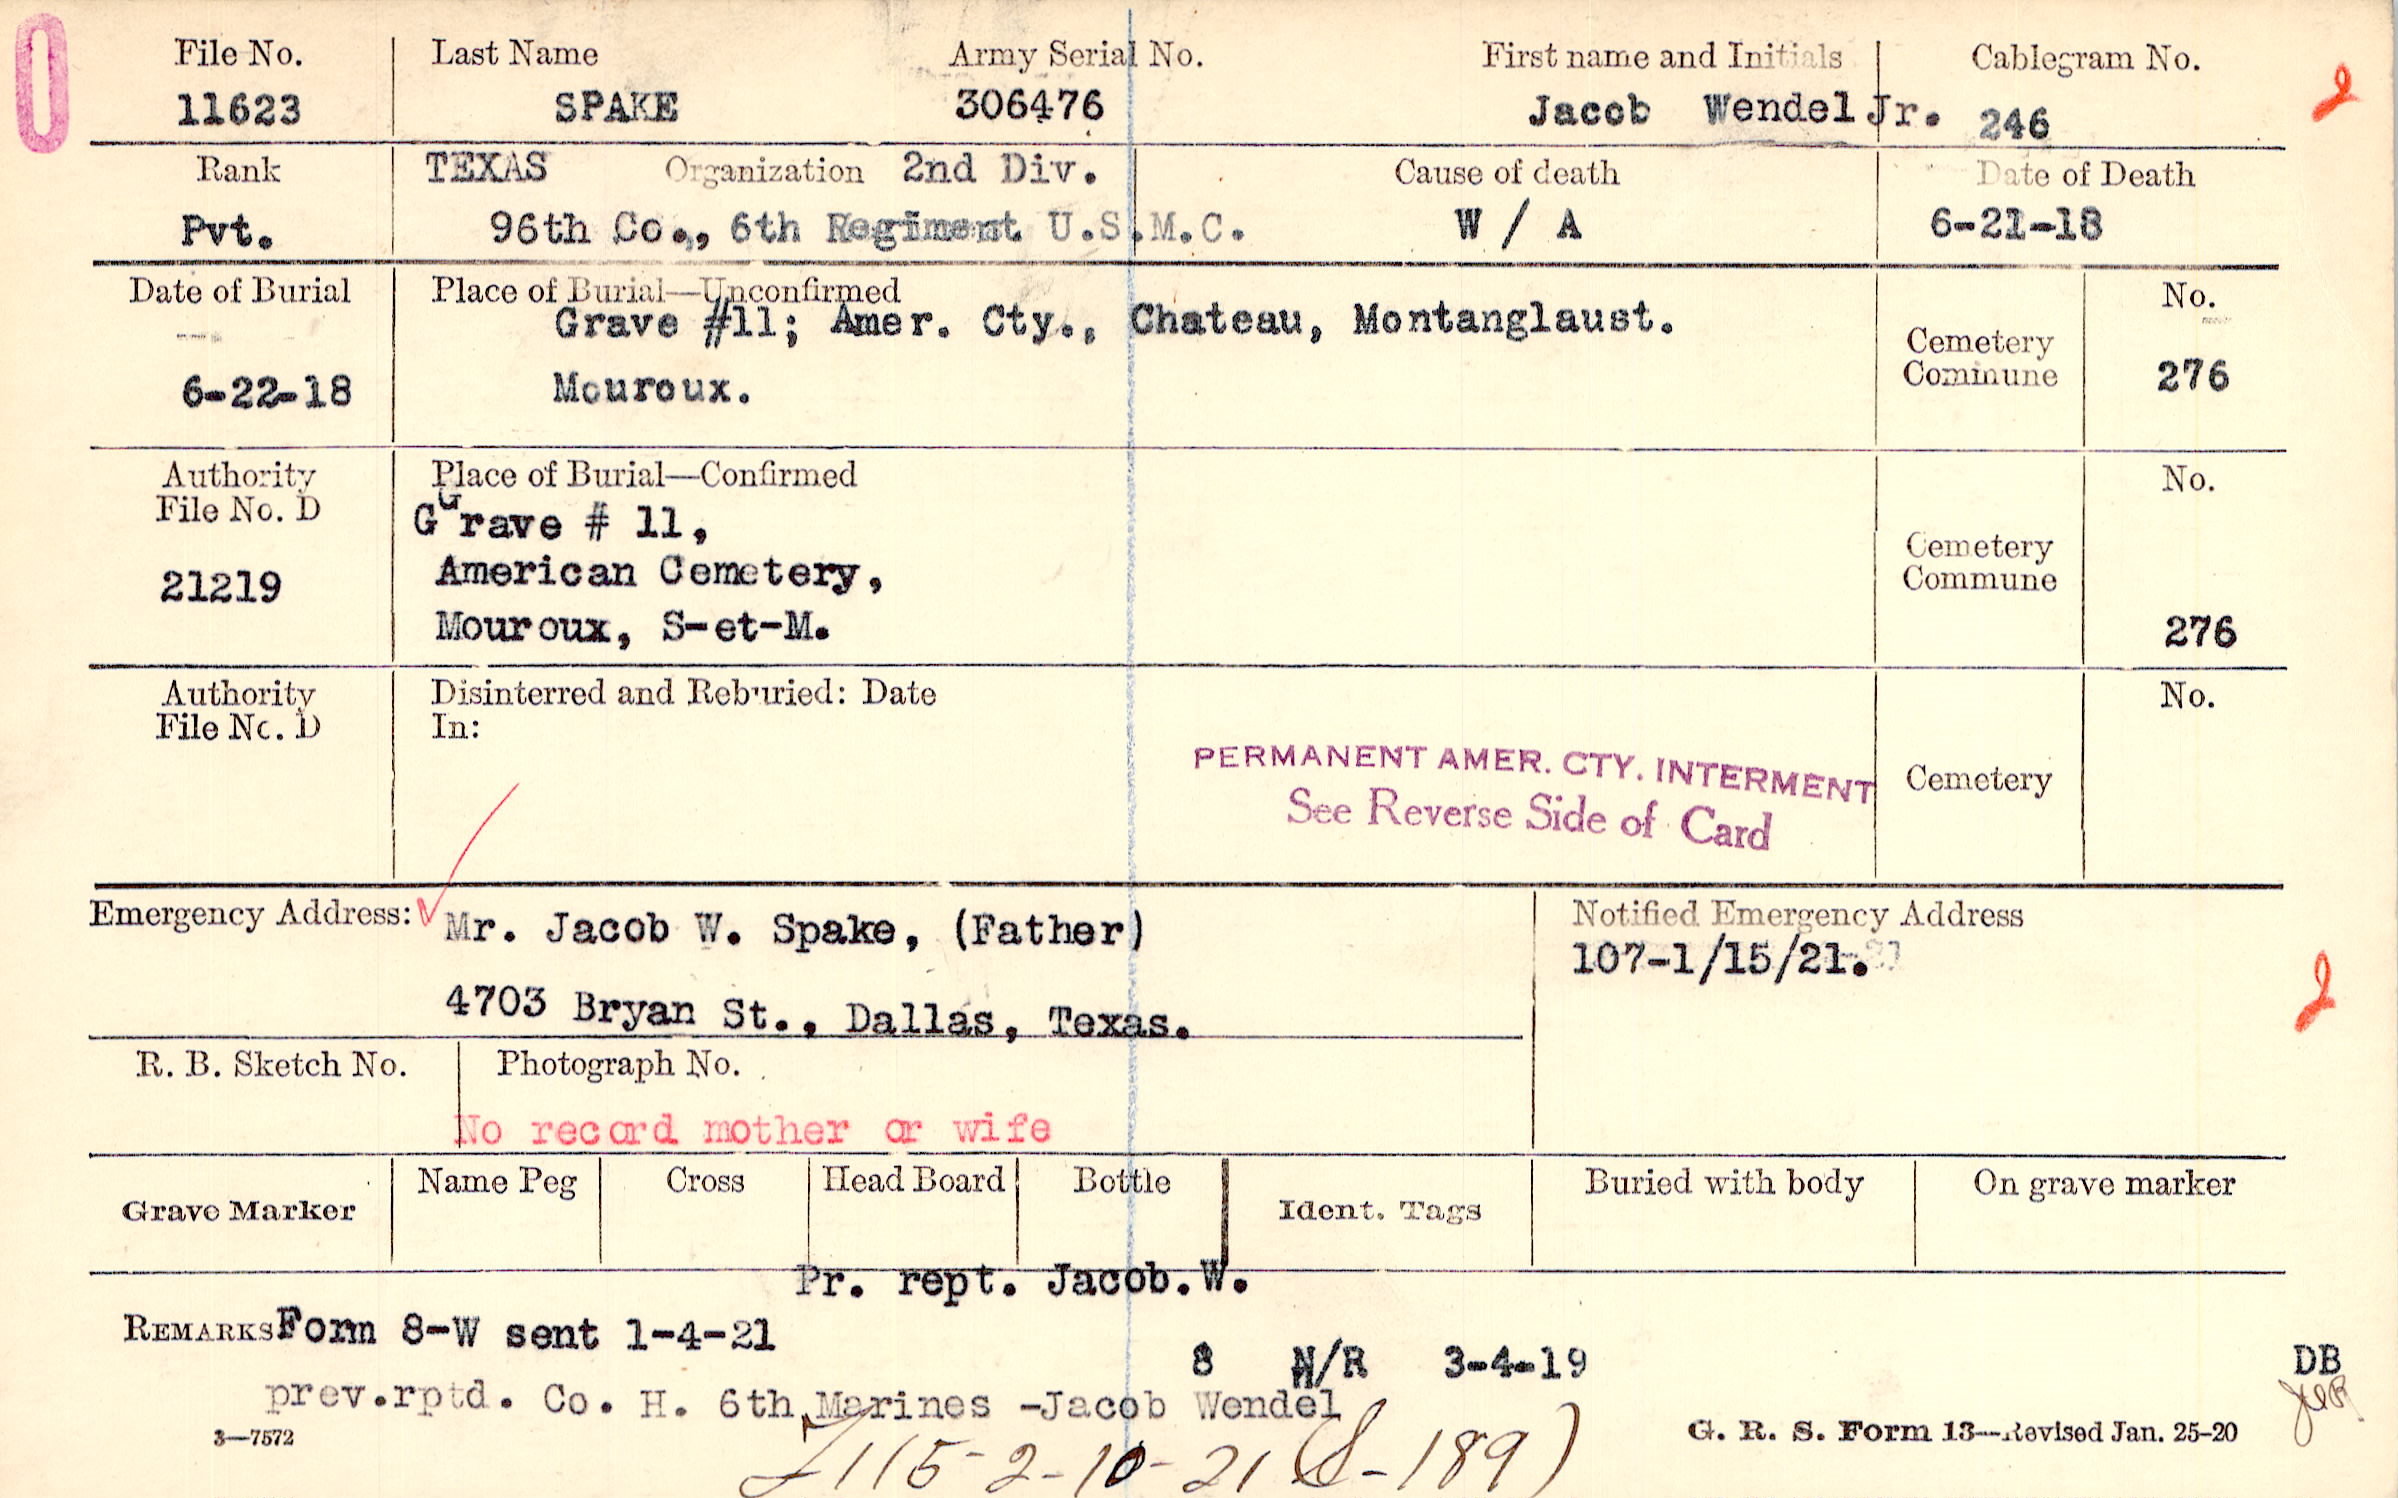 File No. Last Name Army Serial No. First name and Initials Cablegram No.
11623 SPAKE 306476 Jacob Wendel Jr. 246
Rank TEXAS Organization 2nd Div. Cause of death Date of Death
Pvt. 96th Co., 6th Regiment U.S.M.C. W / A 6-21-18
Date of Burial Place of Burial—Unconfirmed No.
Grave #11; Amer. Cty., Chateau, Montanglaust.
6-22-18 Mouroux. Cemetery
Commune 276
Authority Place of Burial—Confirmed No.
File No. D Grave # 11,
21219 American Cemetery, Cemetery
Commune
Mouroux, S-et-M. 276
Authority Disinterred and Reburied: Date No.
File No. D In:
PERMANENT AMER. CTY. INTERMENT Cemetery
See Reverse Side of Card
Emergency Address: Mr. Jacob W. Spake, (Father) Notified Emergency Address
107-1/15/21.
4703 Bryan St., Dallas, Texas.
R. B. Sketch No. Photograph No.
No record mother or wife
Grave Marker Name Peg Cross Head Board Bottle Ident. Tags Buried with body On grave marker
Pr. rept. Jacob.W.
REMARKS Form 8-W sent 1-4-21
8 N/R 3-4-19 DB
prev.rptd. Co. H. 6th Marines -Jacob Wendel
3—7572 G. R. S. Form 13—Revised Jan. 25-20
2-10-21 (S-189)